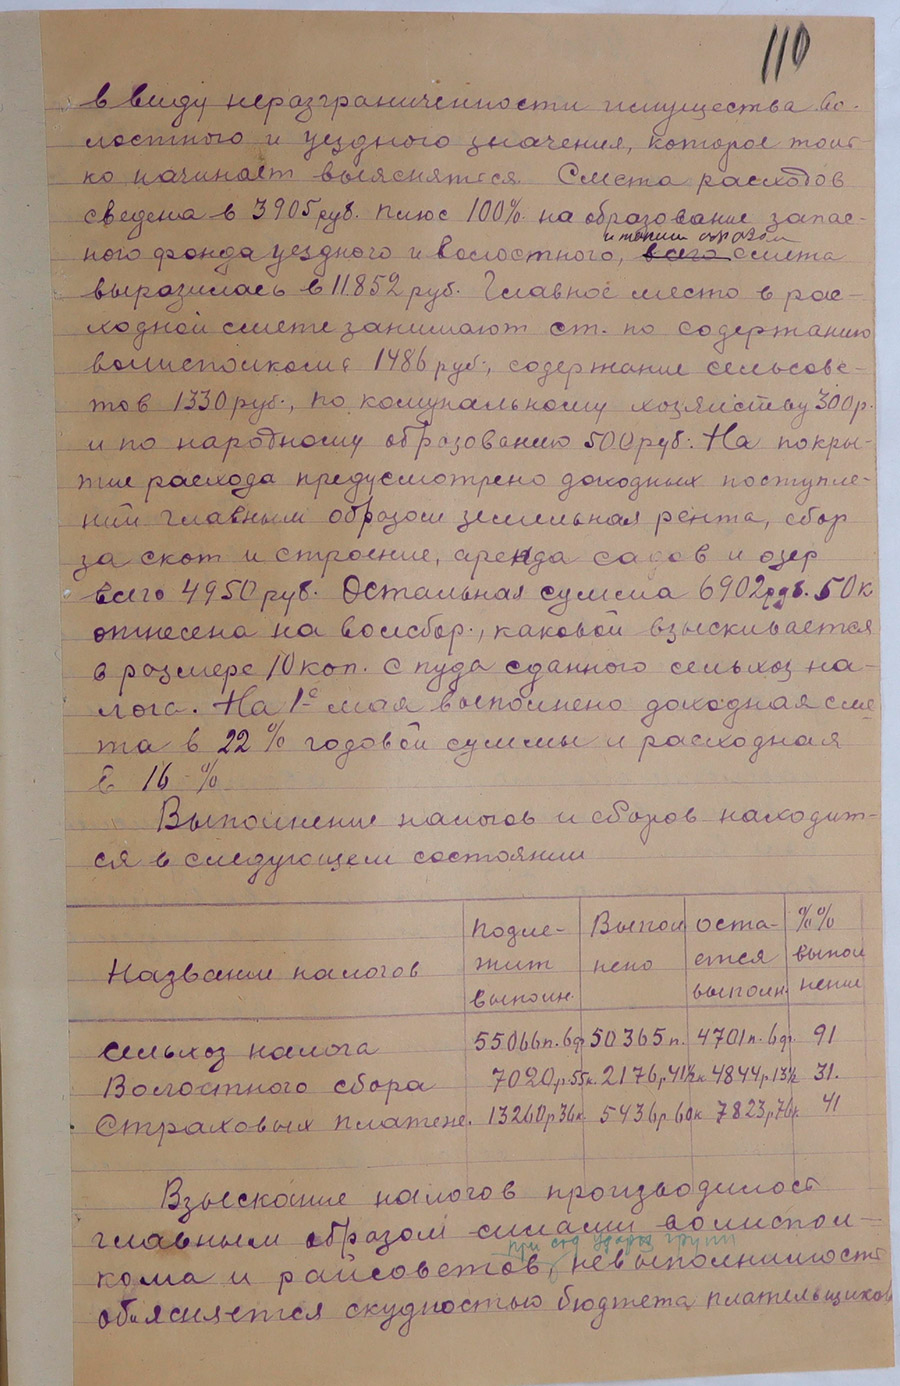 110
в виду неразграниченности имущества во-
лостного и уездного значения, которое толь-
ко начинает выясняться. Смета расходов
сведена в 3905 руб. плюс 100% на образование запас-
и таким образом
ного фонда уездного и волостного, всего смета
выразилась в 11852 руб. Главное место в рас-
ходной смете занимают ст. по содержанию
волисполкома 1486 руб., содержание сельсове-
тов 1330 руб., по комунальному хозяйству 300 р.
и по народному образованию 500 руб. На покры-
тие расхода предусмотрено доходных поступле-
ний главным образом земельная рента, сбор
за скот и строение, аренда садов и озер
всего 4950 руб. Остальная сумма 6902 руб. 50 к
отнесена на волсбор., каковой взыскивается
в размере 10 коп. с пуда сданного сельхоз на-
лога. На 1е мая выполнено доходная сме-
та в 22% годовой суммы и расходная
в 16 %
Выполнение налогов и сборов находит-
ся в следующем состоянии
Название налогов Подле- Выпол оста- %%
жит нено ется выпол
выполн. выполн. нения
Сельхоз налога 55066п. 6ф 50365 п. 4701п. 6ф. 91
Волостного сбора 7020р 55к. 2176р 41½к 4844р 13½ 31.
Страховых платеже. 13260р 36к 5436р 60к 7823р 76к 41
Взыскание налогов производилось
главным образом силами волиспол-
при сод ударн групп
кома и райсоветов, невыполнимость
обьясняется скудностью бюджета плательщиков